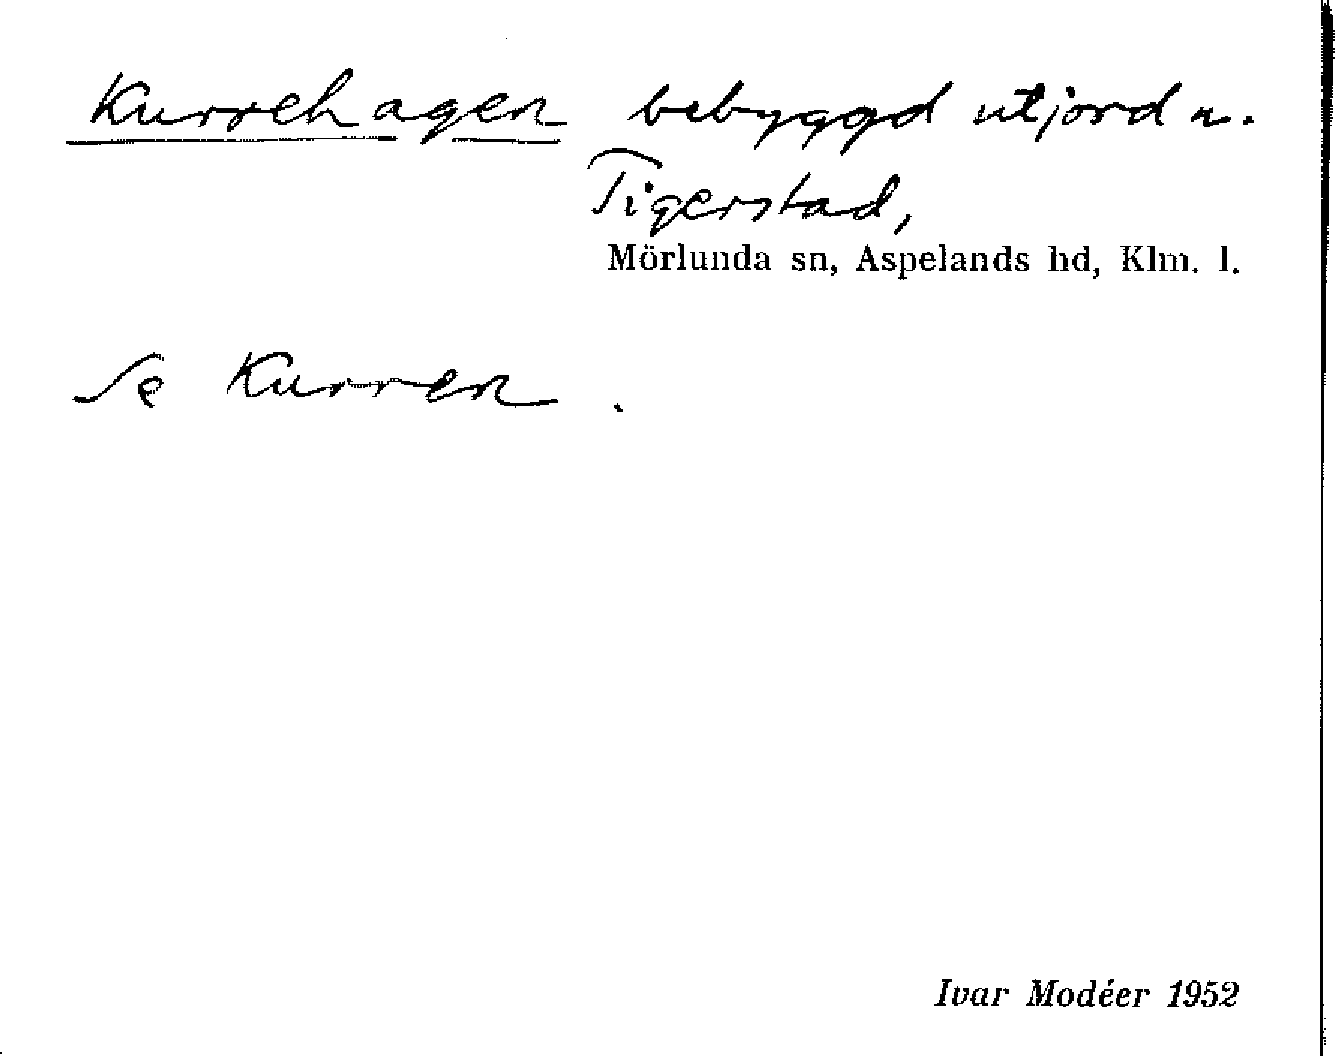 Kurrehagen bebyggd utjord u.
Tigerstad,
Mörlunda sn, Aspelands hd, Klm. l.
Se Kurren.
Ivar Modéer 1952